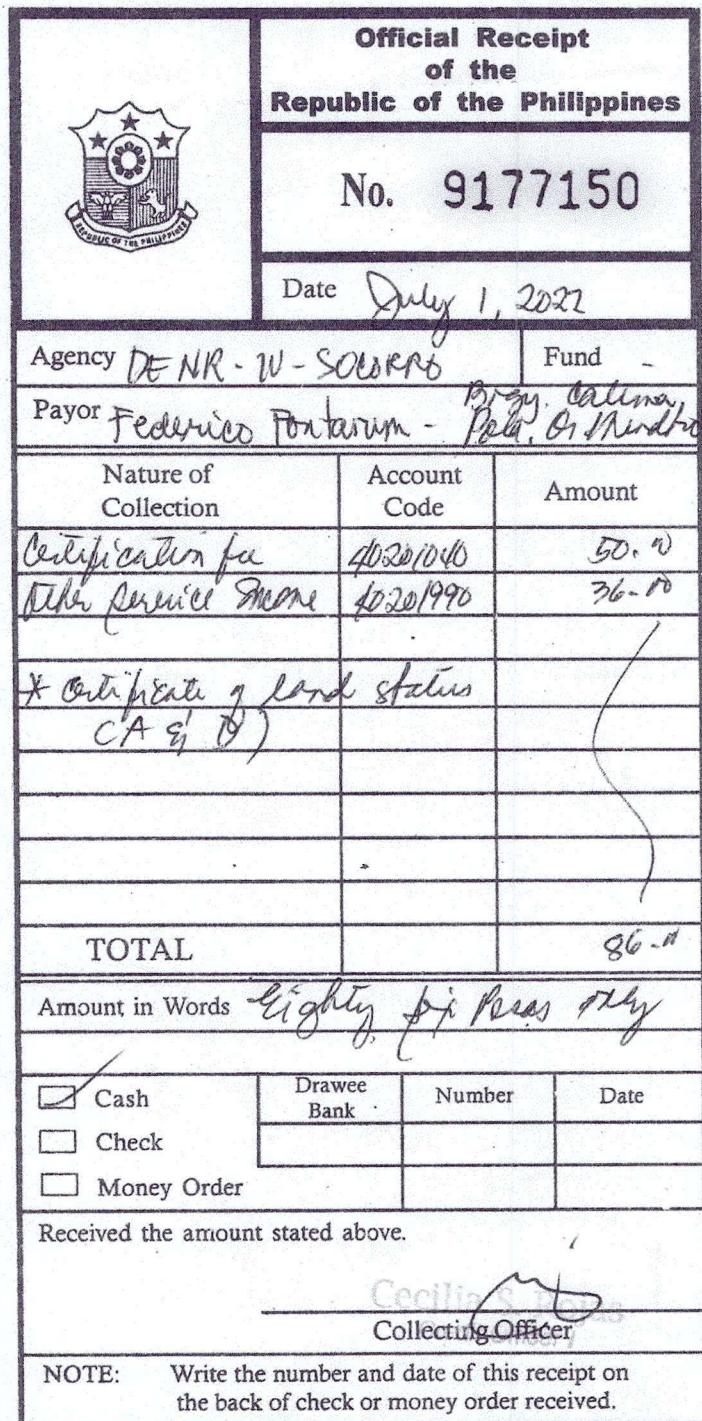 Official Receipt
of the
Republic of the Philippines
REPUBLIC OF THE PHILIPPINES
No. 9177150
Date July 1, 2022
Agency DENR - IV - SOCORRO Fund -
Payor Federico Fontarum - Brgy. Calima, Pola, Or. Mindoro
Nature of Collection Account Code Amount
Certification fee 40201040 50.00
Other Service Income 40201990 36.00
* Certificate of land status
(A & D)
TOTAL 86.00
Amount in Words Eighty six Pesos only
Cash Drawee Bank Number Date
Check
Money Order
Received the amount stated above.
Cecilia S. Rojas
Collecting Officer
NOTE: Write the number and date of this receipt on
the back of check or money order received.